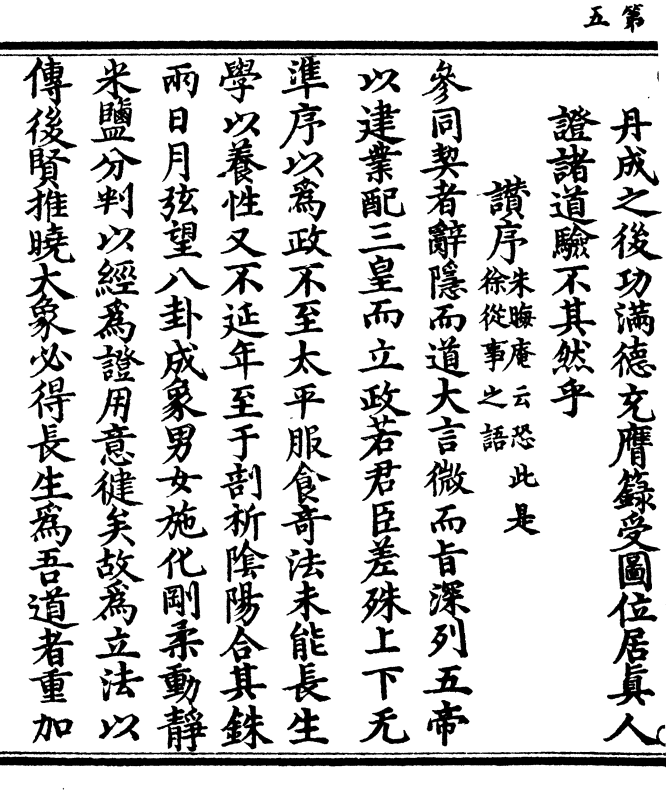 第五
丹成之後功滿德充膺籙受圖位居眞人
證諸道驗不其然乎
讃序朱晦庵云恐此是
徐從事之語
參同契者辭隱而道大言微而旨深列五帝
以建業配三皇而立政若君臣差殊上下无
準序以爲政不至太平服食竒法未能長生
學以養性又不延年至于剖析陰陽合其銖
兩日月弦望八卦成象男女施化剛柔動靜
米鹽分判以經爲證用意健矣故爲立法以
傳後賢推曉大象必得長生爲吾道者重加